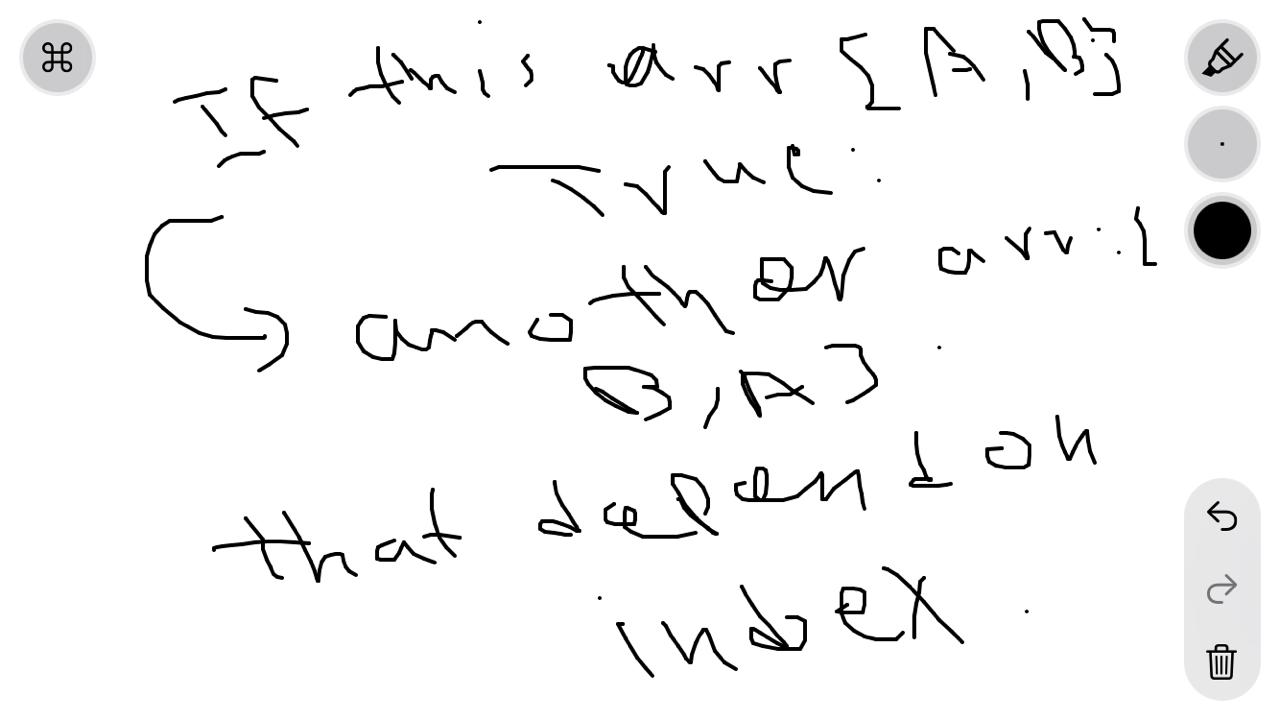 If this arr [A,B]
True :
another arr : [
B,A]
that depend on
index